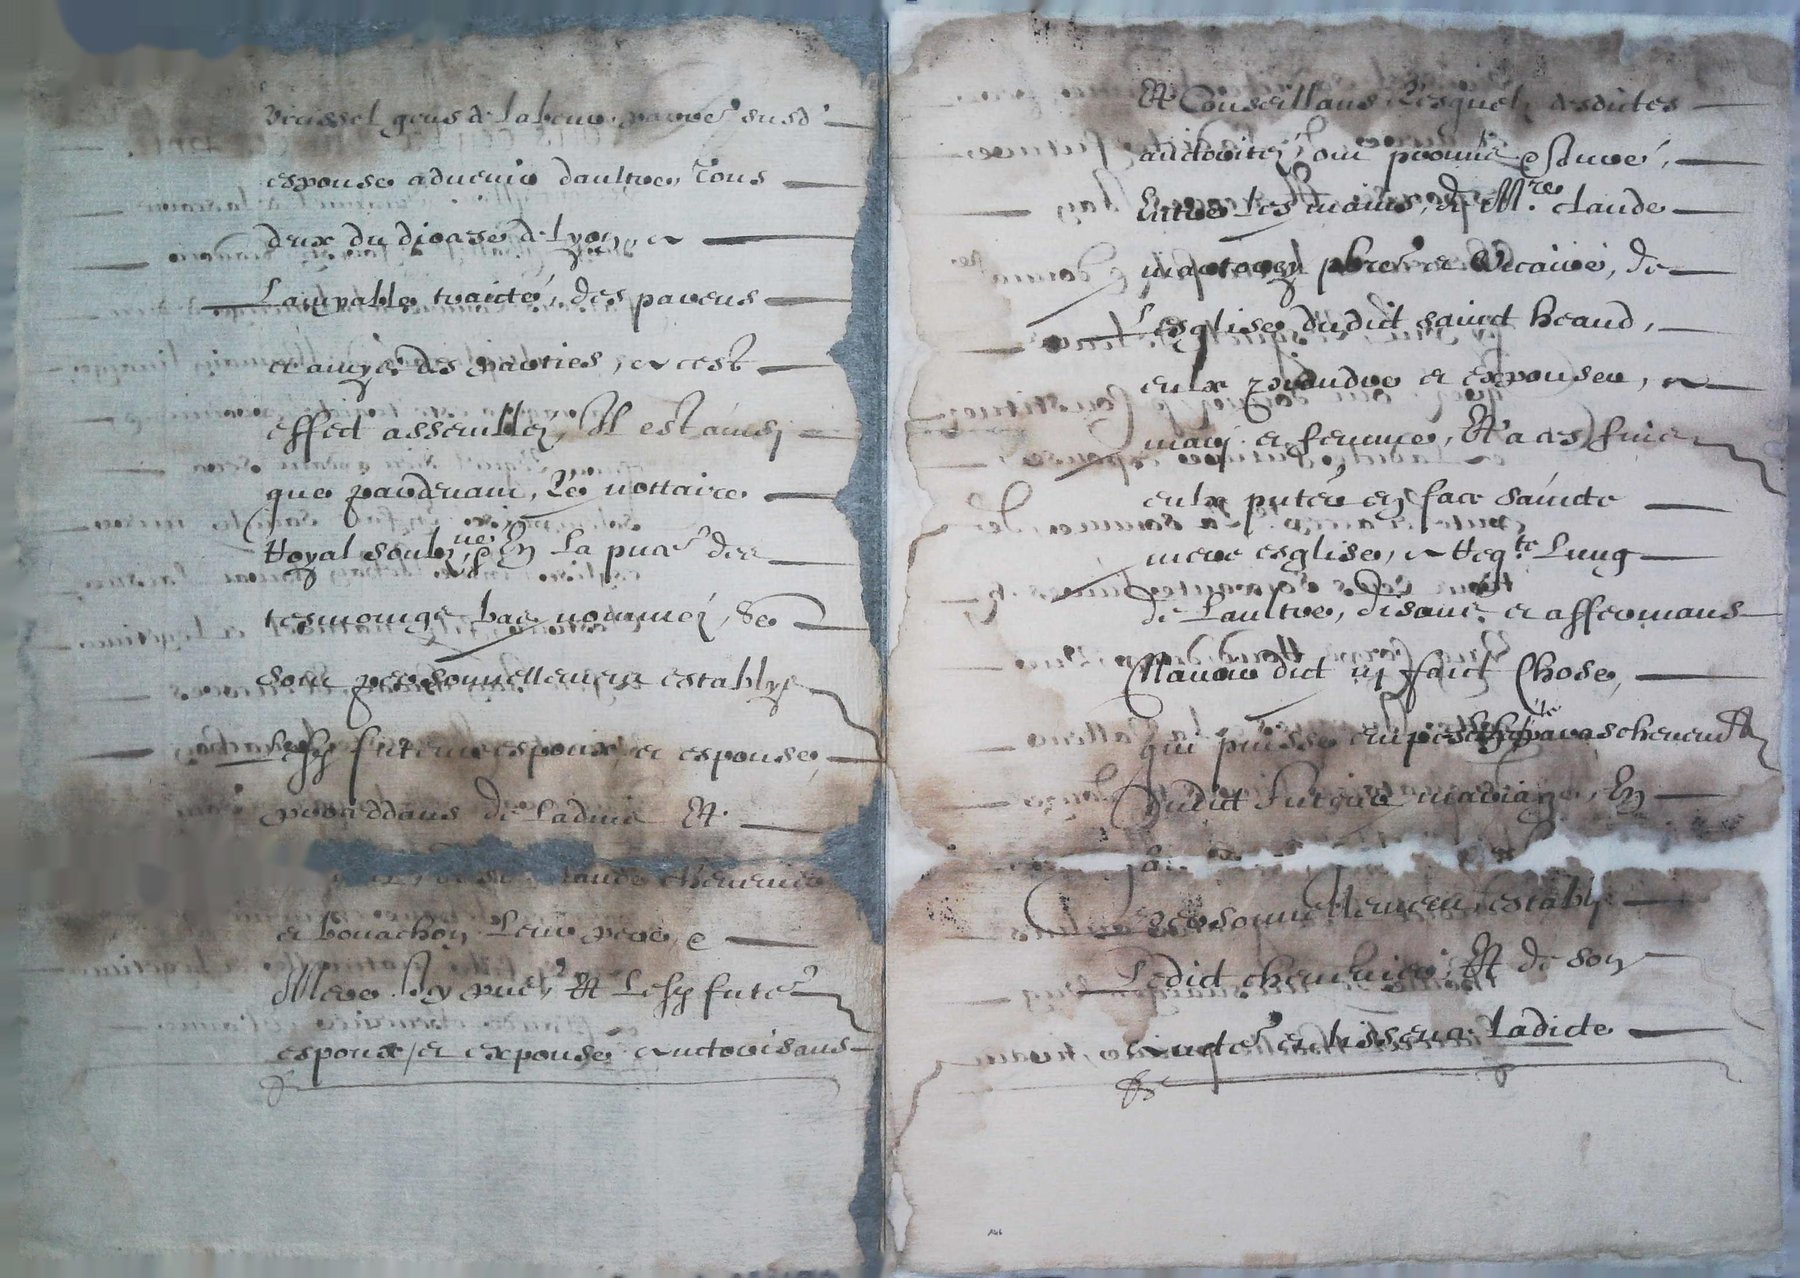 gens de labeur susd
espouse aduenir daultre, Tous
deux du diocese de Lyon, &
Lamyable traicté, des parens
et amys des parties, & cest
effect assemblez, Il est ainsy
que pardeuant, Le nottaire
Royal soubz.né, En La pnce des
tesmoingz bas nommez, Se
Sont personnellement establys
Lesd futeur espoux et espouse,
proceddans de Ladvis Et
laude chemenie
et bouachon Leur pere, e
Mere. Icy pns, Et Lesd futrs
espoux, et expouse auctorisans
Et Conseillans, Lesquelz desdictes
auctoritez, ont promis e Juré,
Entre Les mains, de Mre. claude
pbre et viccaire, de
Lesglise, dudict sainct heand,
eulx prandre et expouser, en
mary et femme, Et a ces fins
eulx pnter en face saincte
mere esglise, a Reqte Lung
de Laultre, disant et affermans
Nauoir dict ny faict Chose,
qui puisse empescher
Dudict Futeur mariage, En
fa
personnellement establi
Ledict chemenier, Et de son
et Ladicte